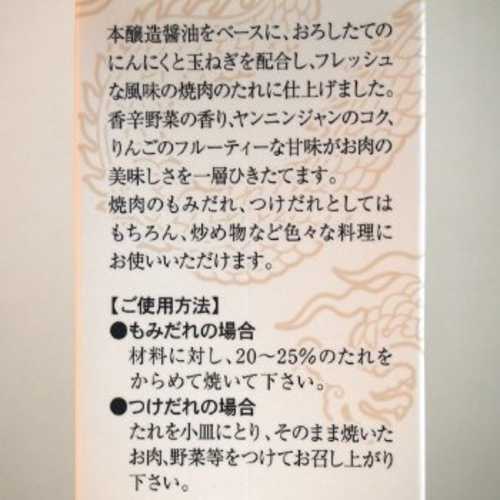 本醸造醤油をベースに、おろしたての
にんにくと玉ねぎを配合し、フレッシュ
な風味の焼肉のたれに仕上げました。
香辛野菜の香り、ヤンニンジャンのコク、
りんごのフルーティーな甘味がお肉の
美味しさを一層ひきたてます。
焼肉のもみだれ、つけだれとしては
もちろん、炒め物など色々な料理に
お使いいただけます。
【ご使用方法】
●もみだれの場合
材料に対し、20～25%のたれを
からめて焼いて下さい。
●つけだれの場合
たれを小皿にとり、そのまま焼いた
お肉、野菜等をつけてお召し上がり
下さい。